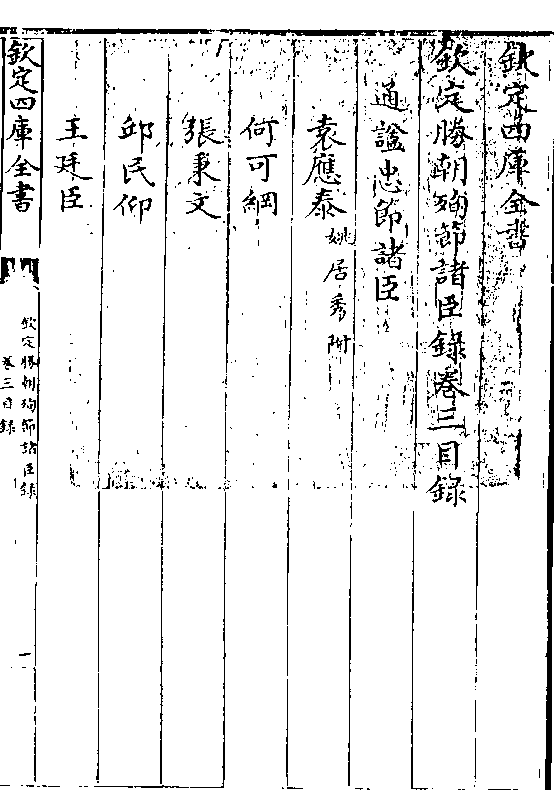 欽定四庫全書
欽定勝朝殉節諸臣錄卷三目錄
通謚忠節諸臣
袁應泰 姚居秀附
何可綱
張秉文
邱民仰
王廷臣
欽定四庫全書
欽定勝朝殉節諸臣錄
卷三目錄
一